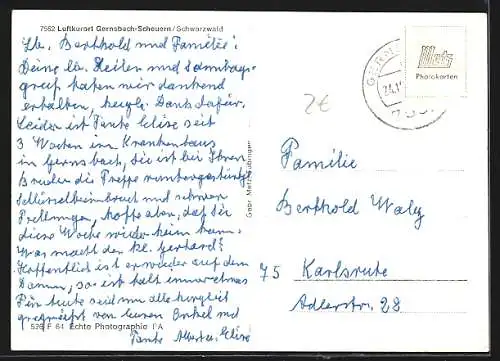 7562 Luftkurort Gernsbach-Scheuern/Schwarzwald
Lb. Berthold und Familie!
Deine lb. Zeilen und Sonntags-
gruß haben wir dankend
erhalten, herzl. Dank dafür.
Leider ist Tante Elise seit
3 Wochen im Krankenhaus
in Gernsbach, sie ist bei Ihrem
Bruder die Treppe runtergestürzt
Schlüsselbeinbruch und schwere
Prellungen, hoffe aber, daß sie
diese Woche wieder heim kann.
Was macht der kl. Gerhard?
Hoffentlich ist er wieder auf dem
Damm, so ist halt immer etwas
Für heute seid nun alle herzlich
gegrüßt von Eurem Onkel und
Tante Elise
526 F 64 Echte Photographie PA
Gebr. Metz Tübingen
Metz
Photokarten
2€
Familie
Berthold Walz
75 Karlsruhe
Adlerstr. 28